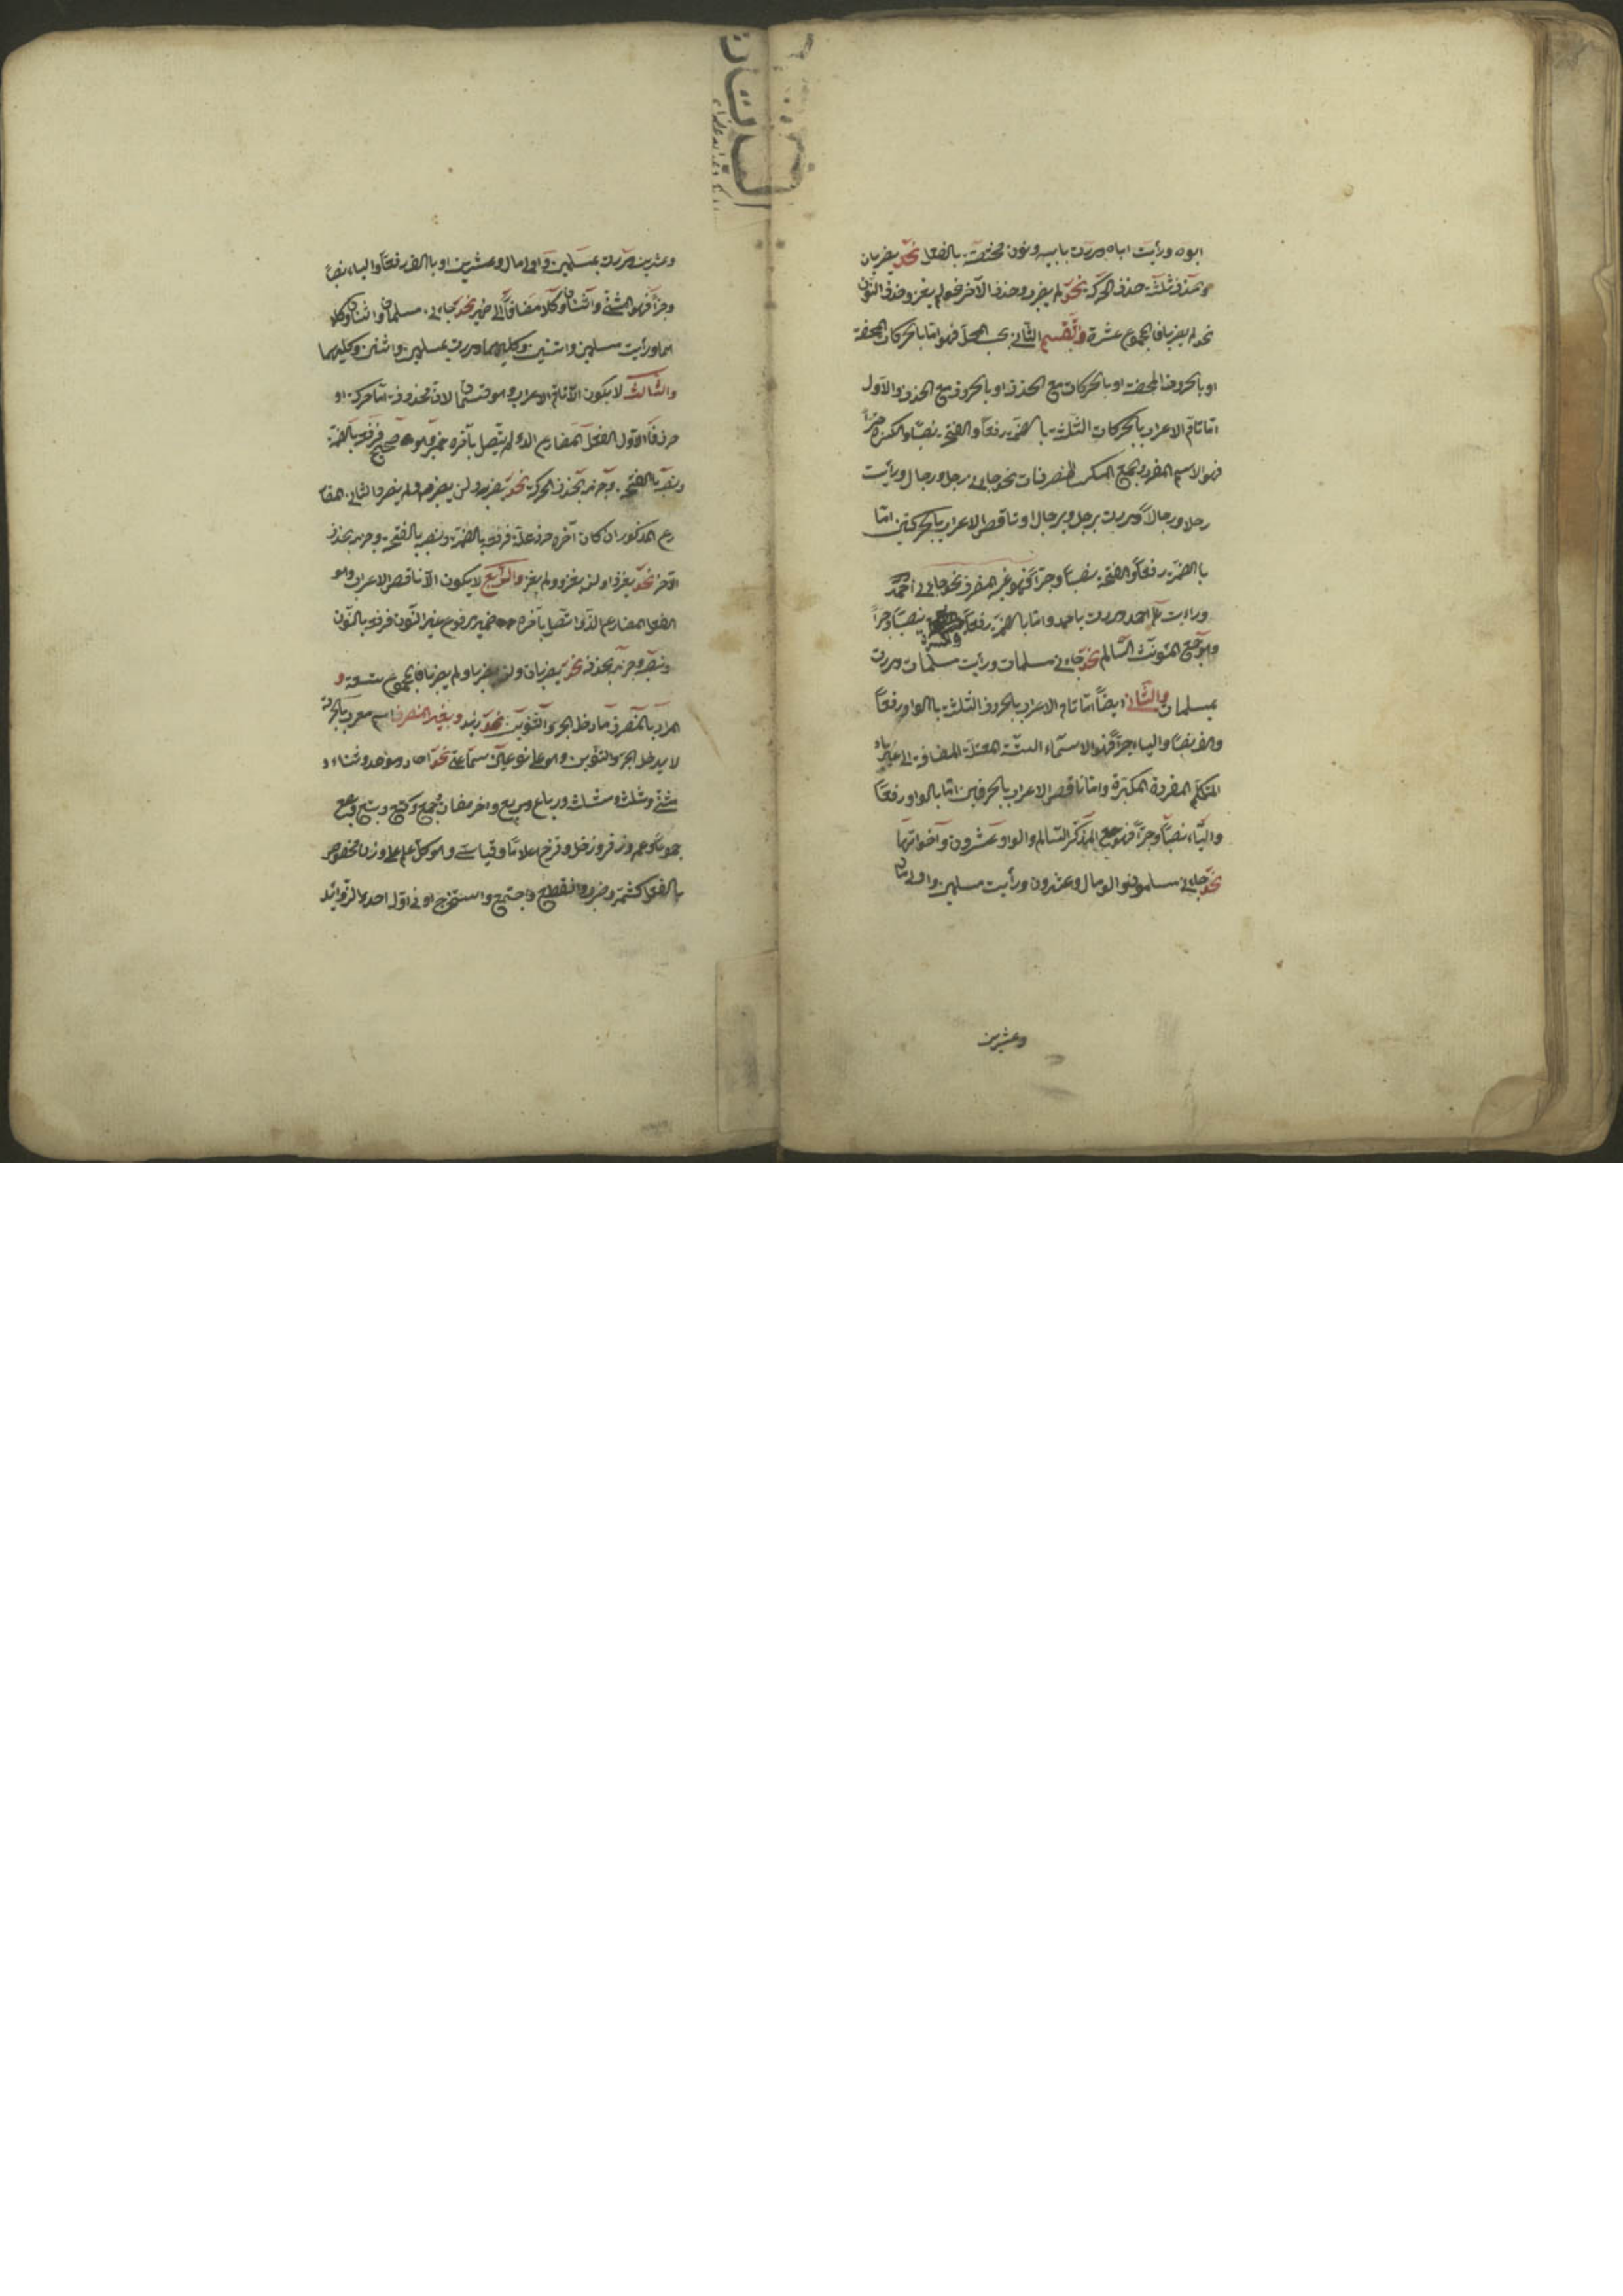 ابوه ورأيت اباه ومررت بابيه ونون مختصة بالفعل نحو يضربان
وحذف ثلثة حذف الحركة نحو لم يضرب وحذف الآخر نحو لم يغز وحذف النون
نحو لم يضربا فالمجموع عشرة والتقسيم الثاني بحسب المحل فهو اما بالحركات المحضة
او بالحروف المحضة او بالحركات مع الحذف او بالحروف مع الحذف والاول
اما تام الاعراب بالحركات الثلثة بالضمة رفعا والفتحة نصبا والكسرة جرا
فهو الاسم المفرد والجمع المكسر المنصرفان نحو جاءني رجل ورجال ورأيت
رجلا ورجالا ومررت برجل وبرجال او ناقص الاعراب بالحركتين اما
بالضمة رفعا والفتحة نصبا وجرا فهو غير المنصرف نحو جاءني احمد
ورأيت احمد ومررت باحمد واما بالضمة رفعا وكسرة نصبا وجرا
وهو جمع المؤنث السالم نحو جاءني مسلمات ورأيت مسلمات ومررت
بمسلمات والثاني ايضا اما تام الاعراب بالحروف الثلثة بالواو رفعا
والالف نصبا والياء جرا فهو الاسماء الستة المعتلة المضافة الى غير ياء
المتكلم المفردة المكبرة واما ناقص الاعراب بالحرفين اما بالواو رفعا
والياء نصبا وجرا فهو جمع المذكر السالم والواو عشرون واخواتها
نحو جاءني مسلمون والو مال وعشرون ورأيت مسلمين واولى مال
وعشرين
وعشرين ومررت بمسلمين واولى مال وعشرين او بالالف رفعا والياء نصبا
وجرا فهو المثنى واثنان وكلا مضافا الى ضمير نحو جاءني مسلمان واثنان وكلا
هما ورأيت مسلمين واثنين وكليهما ومررت بمسلمين واثنين وكليهما
والثالث لا يكون الا تام الاعراب وهو قسمان لان محذوفه اما حركة او
حرف فالاول الفعل المضارع الذي لم يتصل بآخره ضمير وهو صحيح فرفعه بالضمة
ونصبه بالفتحة وجزمه بحذف الحركة نحو يضرب ولن يضرب ولم يضرب والثاني المضا
رع المذكور ان كان آخره حرف علة فرفعه بالضمة ونصبه بالفتحة وجزمه بحذف
الآخر نحو يغزو ولن يغزو ولم يغز والرابع لا يكون الا ناقص الاعراب وهو
الفعل المضارع الذي اتصل بآخره ضمير مرفوع غير النون فرفعه بالنون
ونصبه وجزمه بحذفه نحو يضربان ولن يضربا ولم يضربا فالمجموع تسعة و
المراد بالمنصرف ما دخل الجر والتنوين نحو زيد وبغير المنصرف اسم معرب بالحركة
لا يدخل الجر والتنوين وهو على نوعين سماعي نحو احاد وموحد وثناء و
مثنى وثلاث ومثلث ورباع ومربع واخر مضان وجمع وكتع وبتع وبصع
جموعا وعمر وزفر وزحل وقزح اعلاما وقياسي وهو كل علم على وزن مخصوص
بالفعل كشمر وضرب وانقطع واجتمع واستخرج او في اوله احدى الزوائد